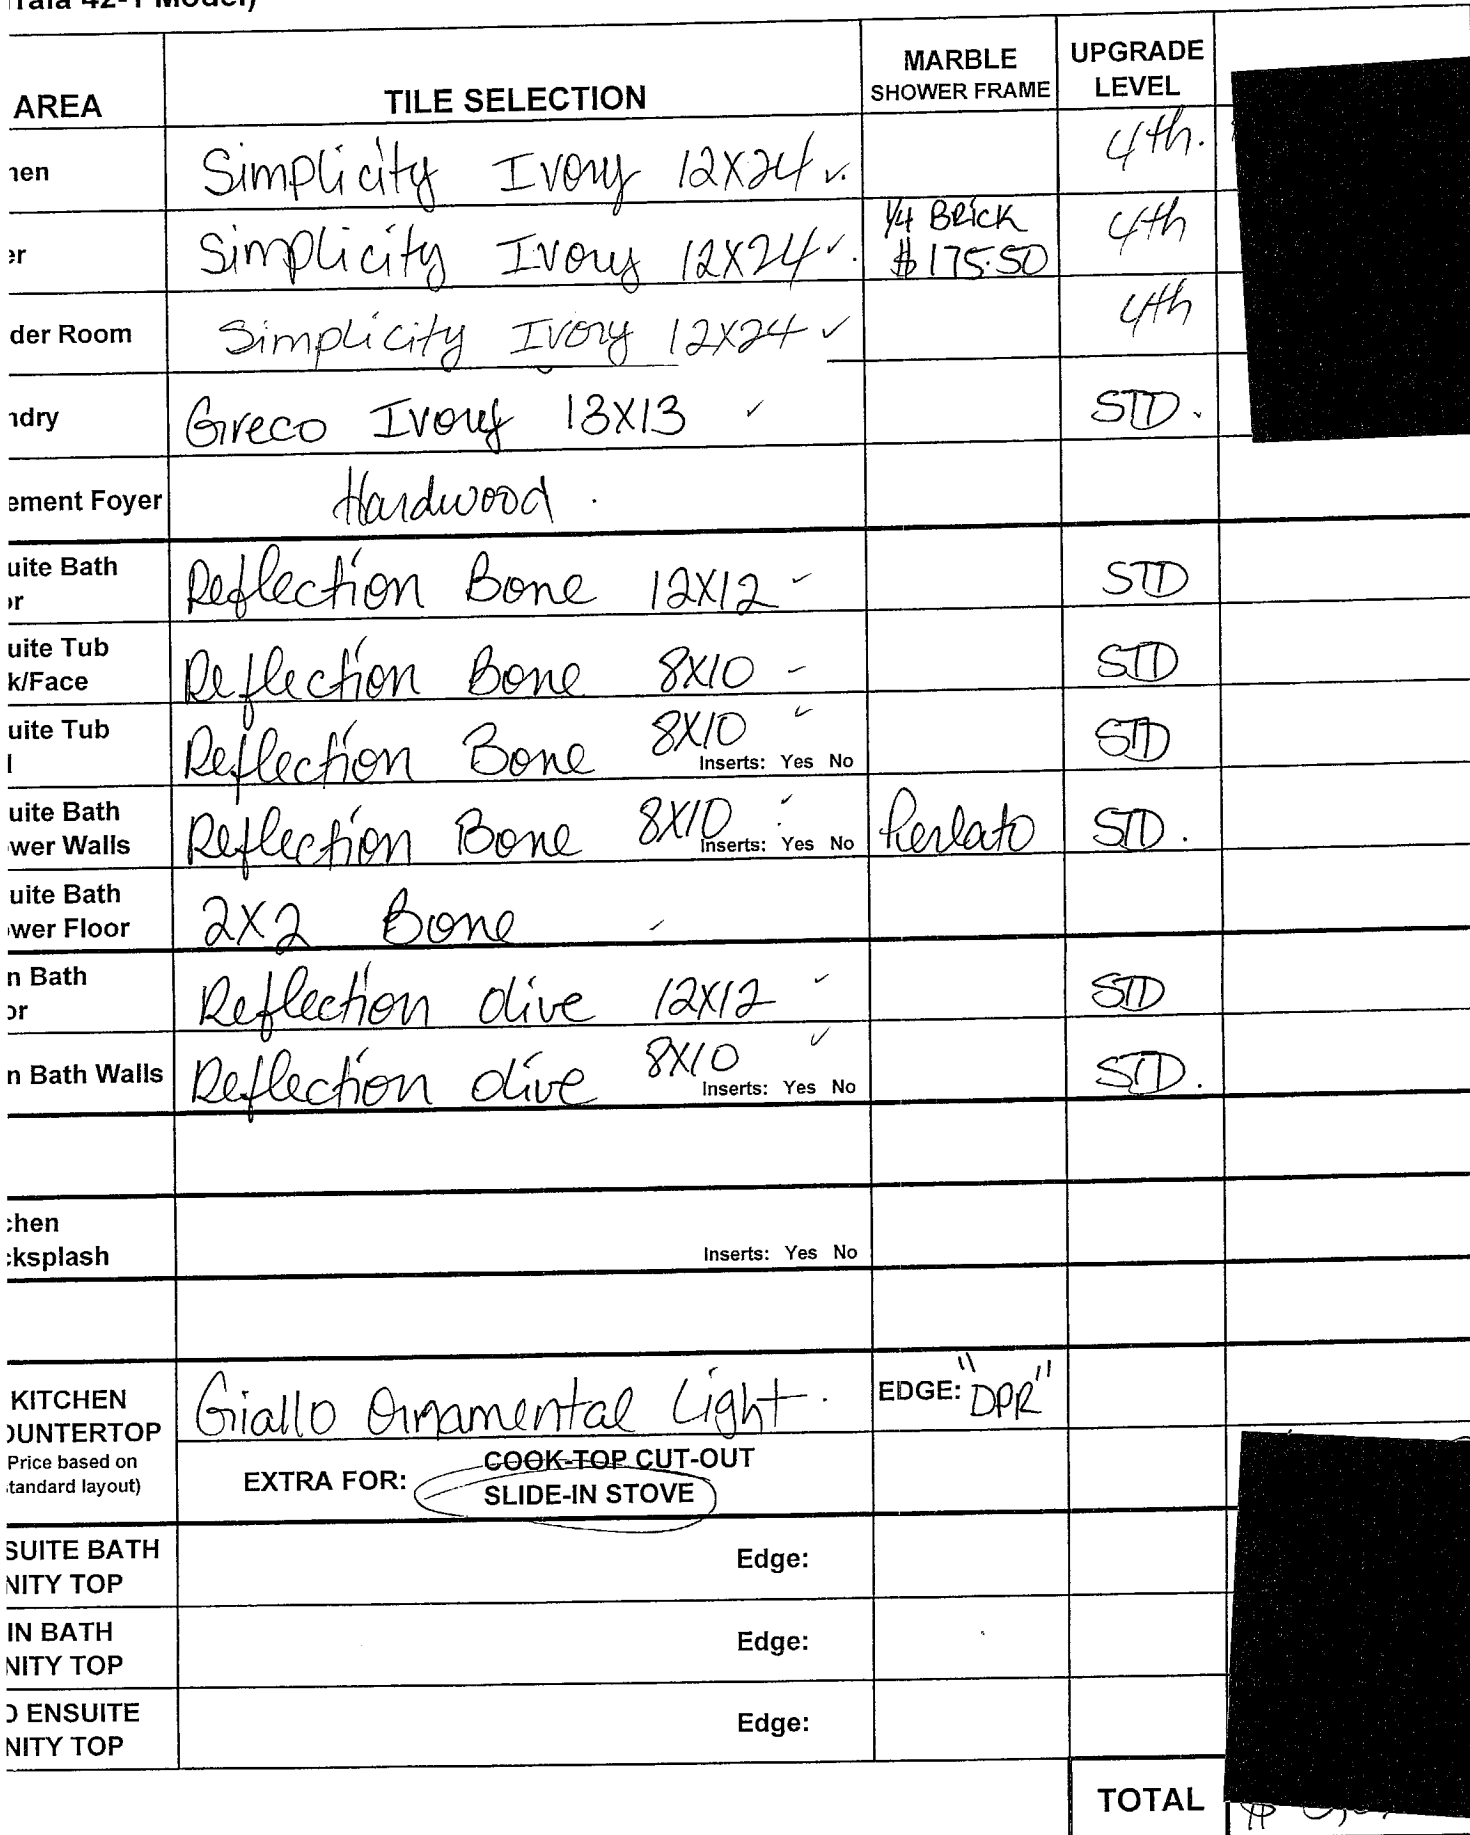 42-1 Model)
AREA TILE SELECTION MARBLE SHOWER FRAME UPGRADE LEVEL
hen Simplicity Ivory 12X24 ✓. 4th.
er Simplicity Ivory 12X24 ✓. 1/4 BRICK $175.50 4th
der Room Simplicity Ivory 12X24 ✓ 4th
ndry Greco Ivory 13X13 ✓ STD.
ement Foyer Hardwood.
uite Bath
or Reflection Bone 12X12 ✓ STD
uite Tub
k/Face Reflection Bone 8X10 - STD
uite Tub
l Reflection Bone 8X10 ✓ Inserts: Yes No STD
uite Bath
wer Walls Reflection Bone 8X10 ✓ Inserts: Yes No Perlato STD.
uite Bath
wer Floor 2X2 Bone ✓
n Bath
or Reflection Olive 12X12 ✓ STD
n Bath Walls Reflection Olive 8X10 ✓ Inserts: Yes No STD.
chen
cksplash Inserts: Yes No
KITCHEN
OUNTERTOP Giallo Ornamental Light. EDGE: "DPR"
Price based on
tandard layout) EXTRA FOR: COOK-TOP CUT-OUT
SLIDE-IN STOVE
SUITE BATH
NITY TOP Edge:
IN BATH
NITY TOP Edge:
D ENSUITE
NITY TOP Edge:
TOTAL $